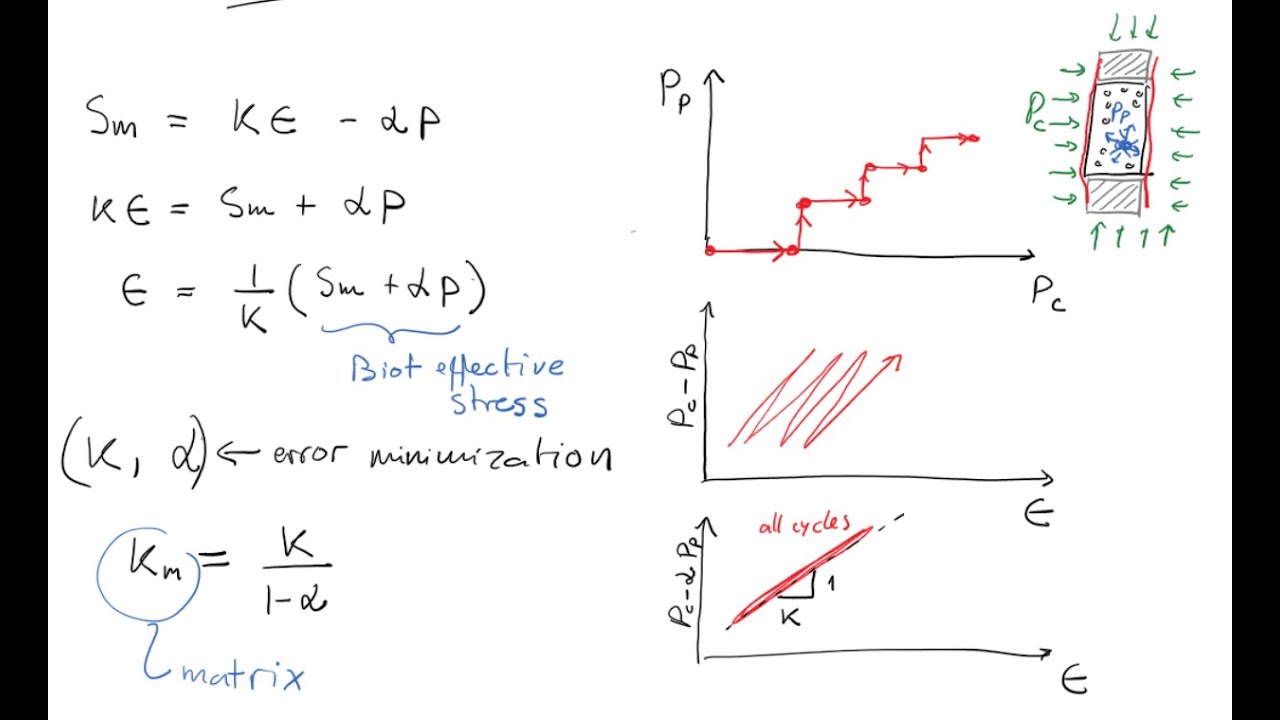 Sm = Kϵ - αP
Kϵ = Sm + αP
ϵ = 1/K (Sm + αP)
Biot effective
stress
(K, α) ← error minimization
Km = K/(1-α)
matrix
Pp
Pc
Pc
Pp
Pc - Pp
ϵ
all cycles
Pc - αPp
1
K
ϵ